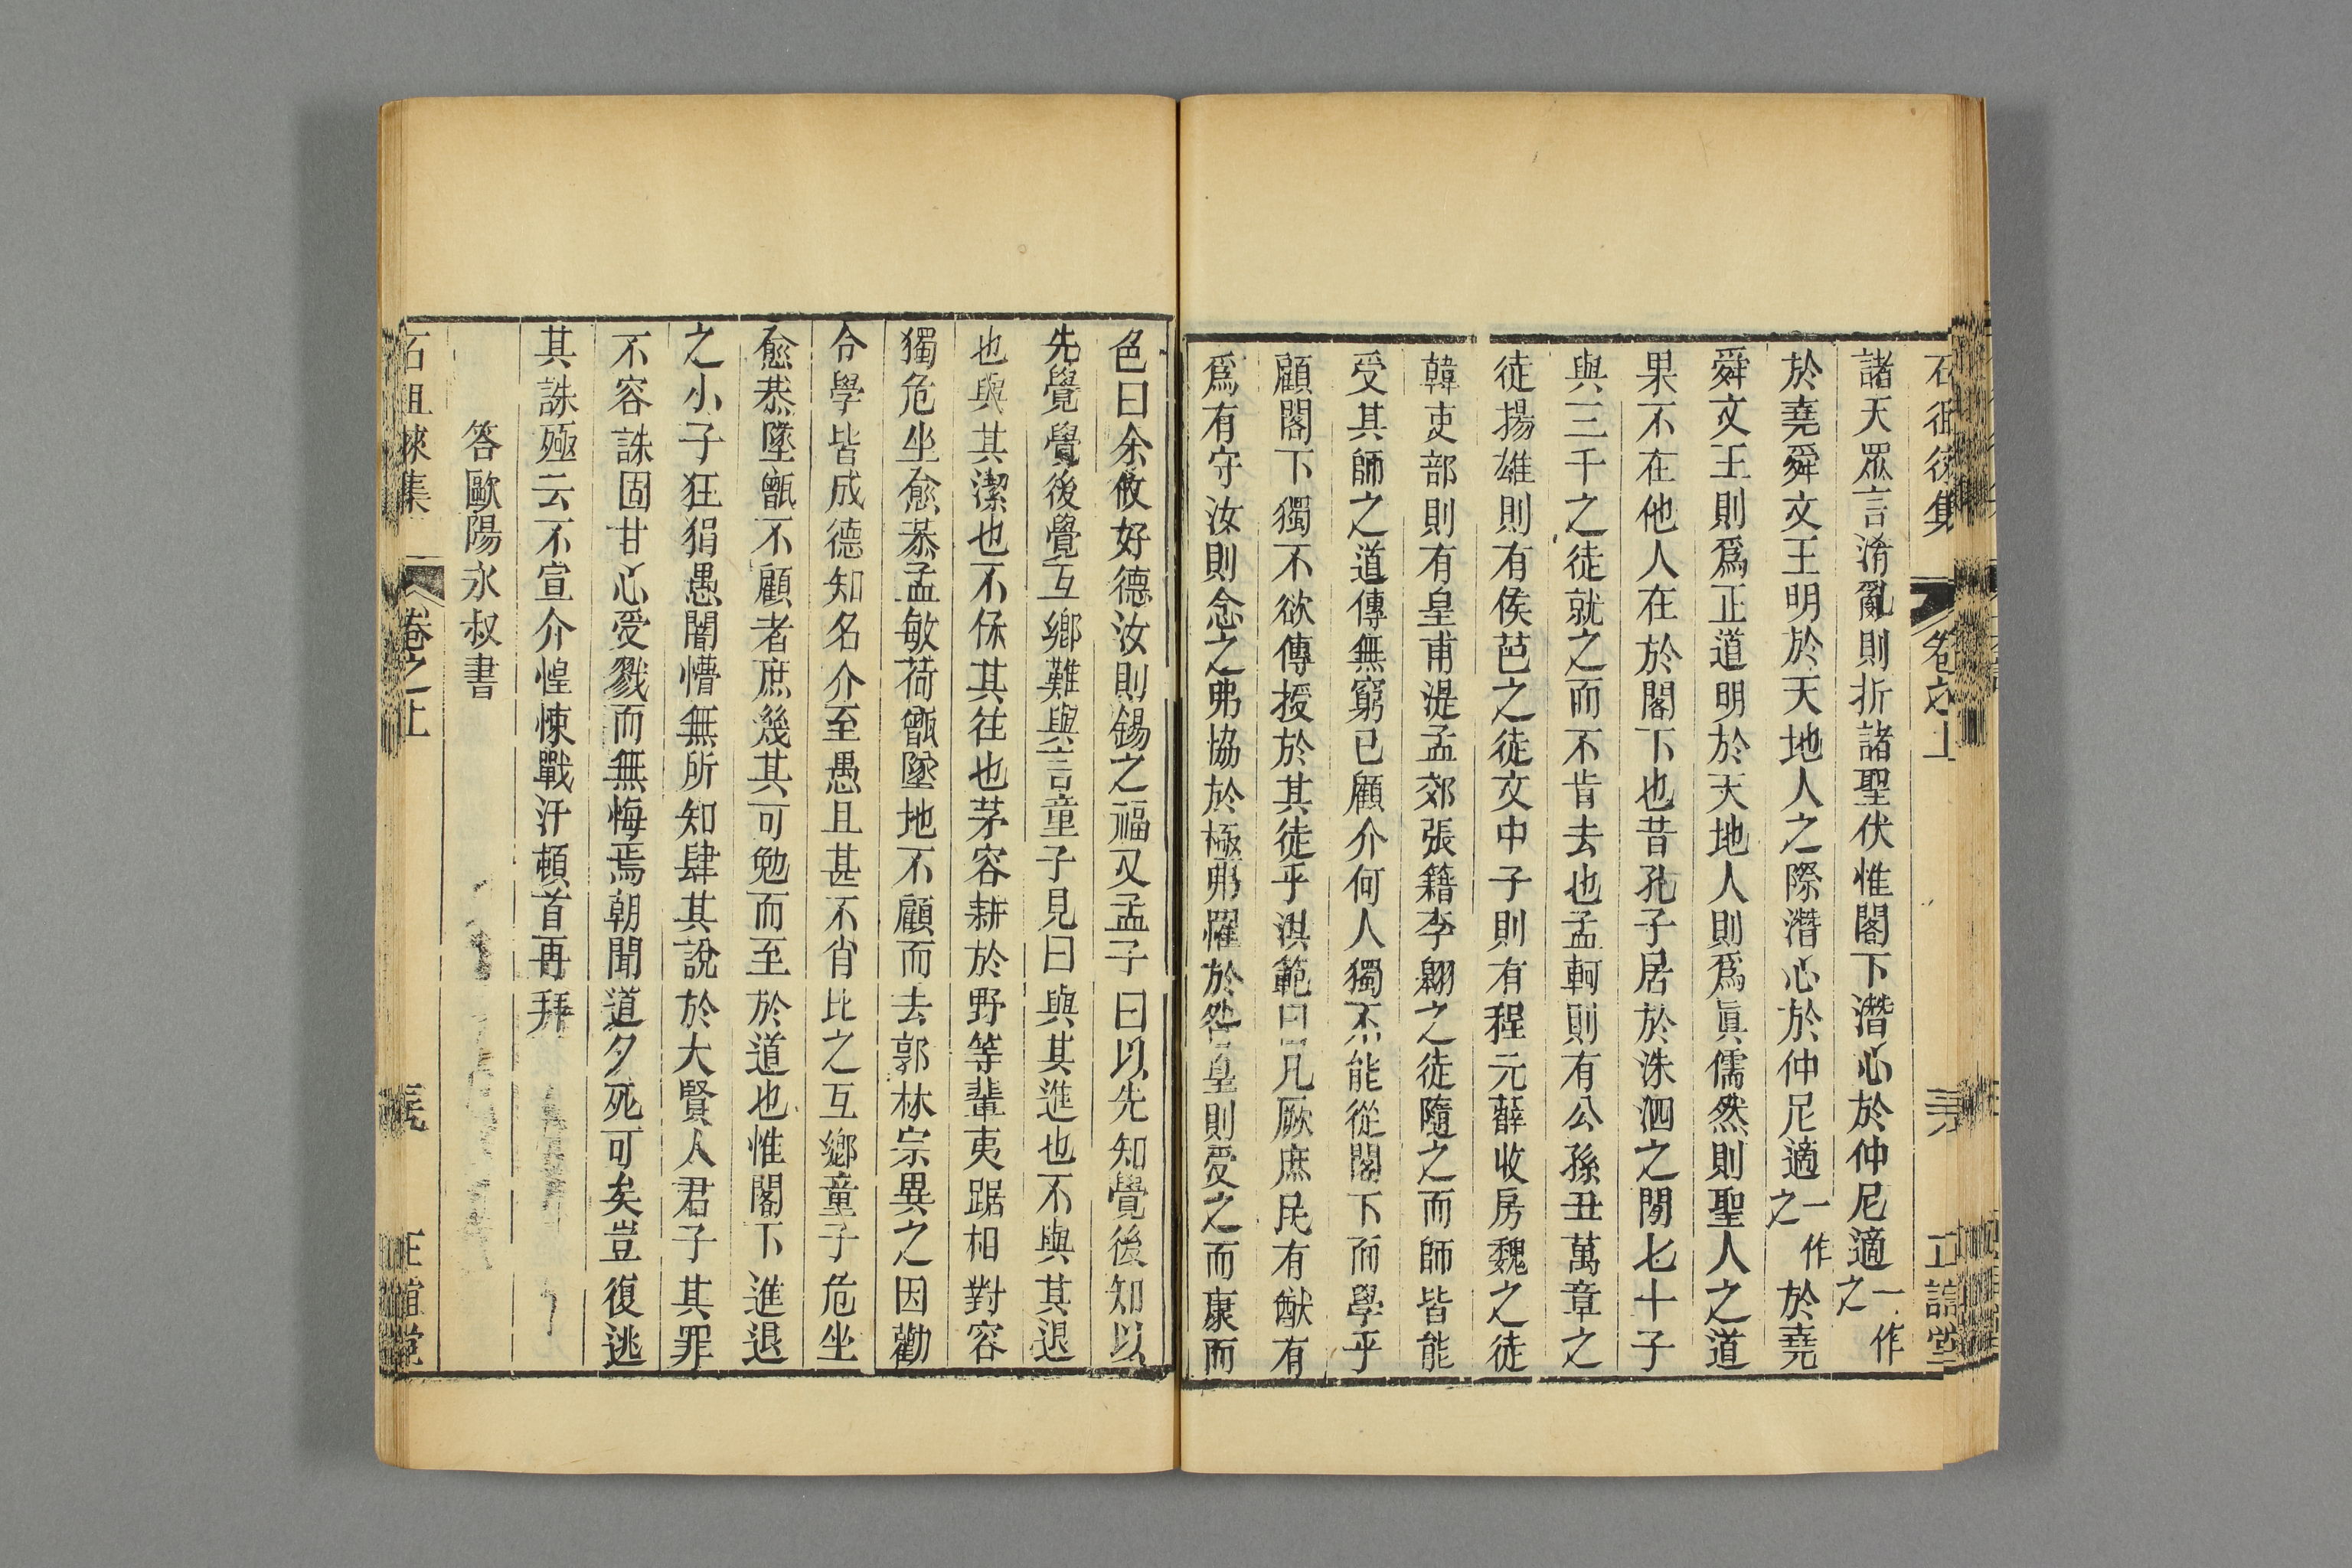 石徂徠集
卷之上
正誼堂
諸天眾言淆亂則折諸聖伏惟閣下潛心於仲尼適一作之
於堯舜文王明於天地人之際潛心於仲尼適一作之於堯
舜文王則爲正道明於天地人則爲眞儒然則聖人之道
果不在他人在於閣下也昔孔子居於洙泗之閒七十子
與三千之徒就之而不肯去也孟軻則有公孫丑萬章之
徒揚雄則有侯芭之徒文中子則有程元薛收房魏之徒
韓吏部則有皇甫湜孟郊張籍李翺之徒隨之而師皆能
受其師之道傳無窮已顧介何人獨不能從閣下而學乎
顧閣下獨不欲傳授於其徒乎洪範曰凡厥庶民有猷有
爲有守汝則念之弗協於極弗罹於咎皇則受之而康而
色曰余攸好德汝則錫之福又孟子曰以先知覺後知以
先覺覺後覺互鄉難與言童子見曰與其進也不與其退
也與其潔也不保其往也茅容耕於野等輩夷踞相對容
獨危坐愈恭孟敏荷甑墜地不顧而去郭林宗異之因勸
令學皆成德知名介至愚且甚不肖比之互鄉童子危坐
愈恭墜甑不顧者庶幾其可勉而至於道也惟閣下進退
之小子狂狷愚闇懵無所知肆其說於大賢人君子其罪
不容誅固甘心受戮而無悔焉朝聞道夕死可矣豈復逃
其誅殛云不宣介惶悚戰汗頓首再拜
答歐陽永叔書
石徂徠集
卷之上
正誼堂